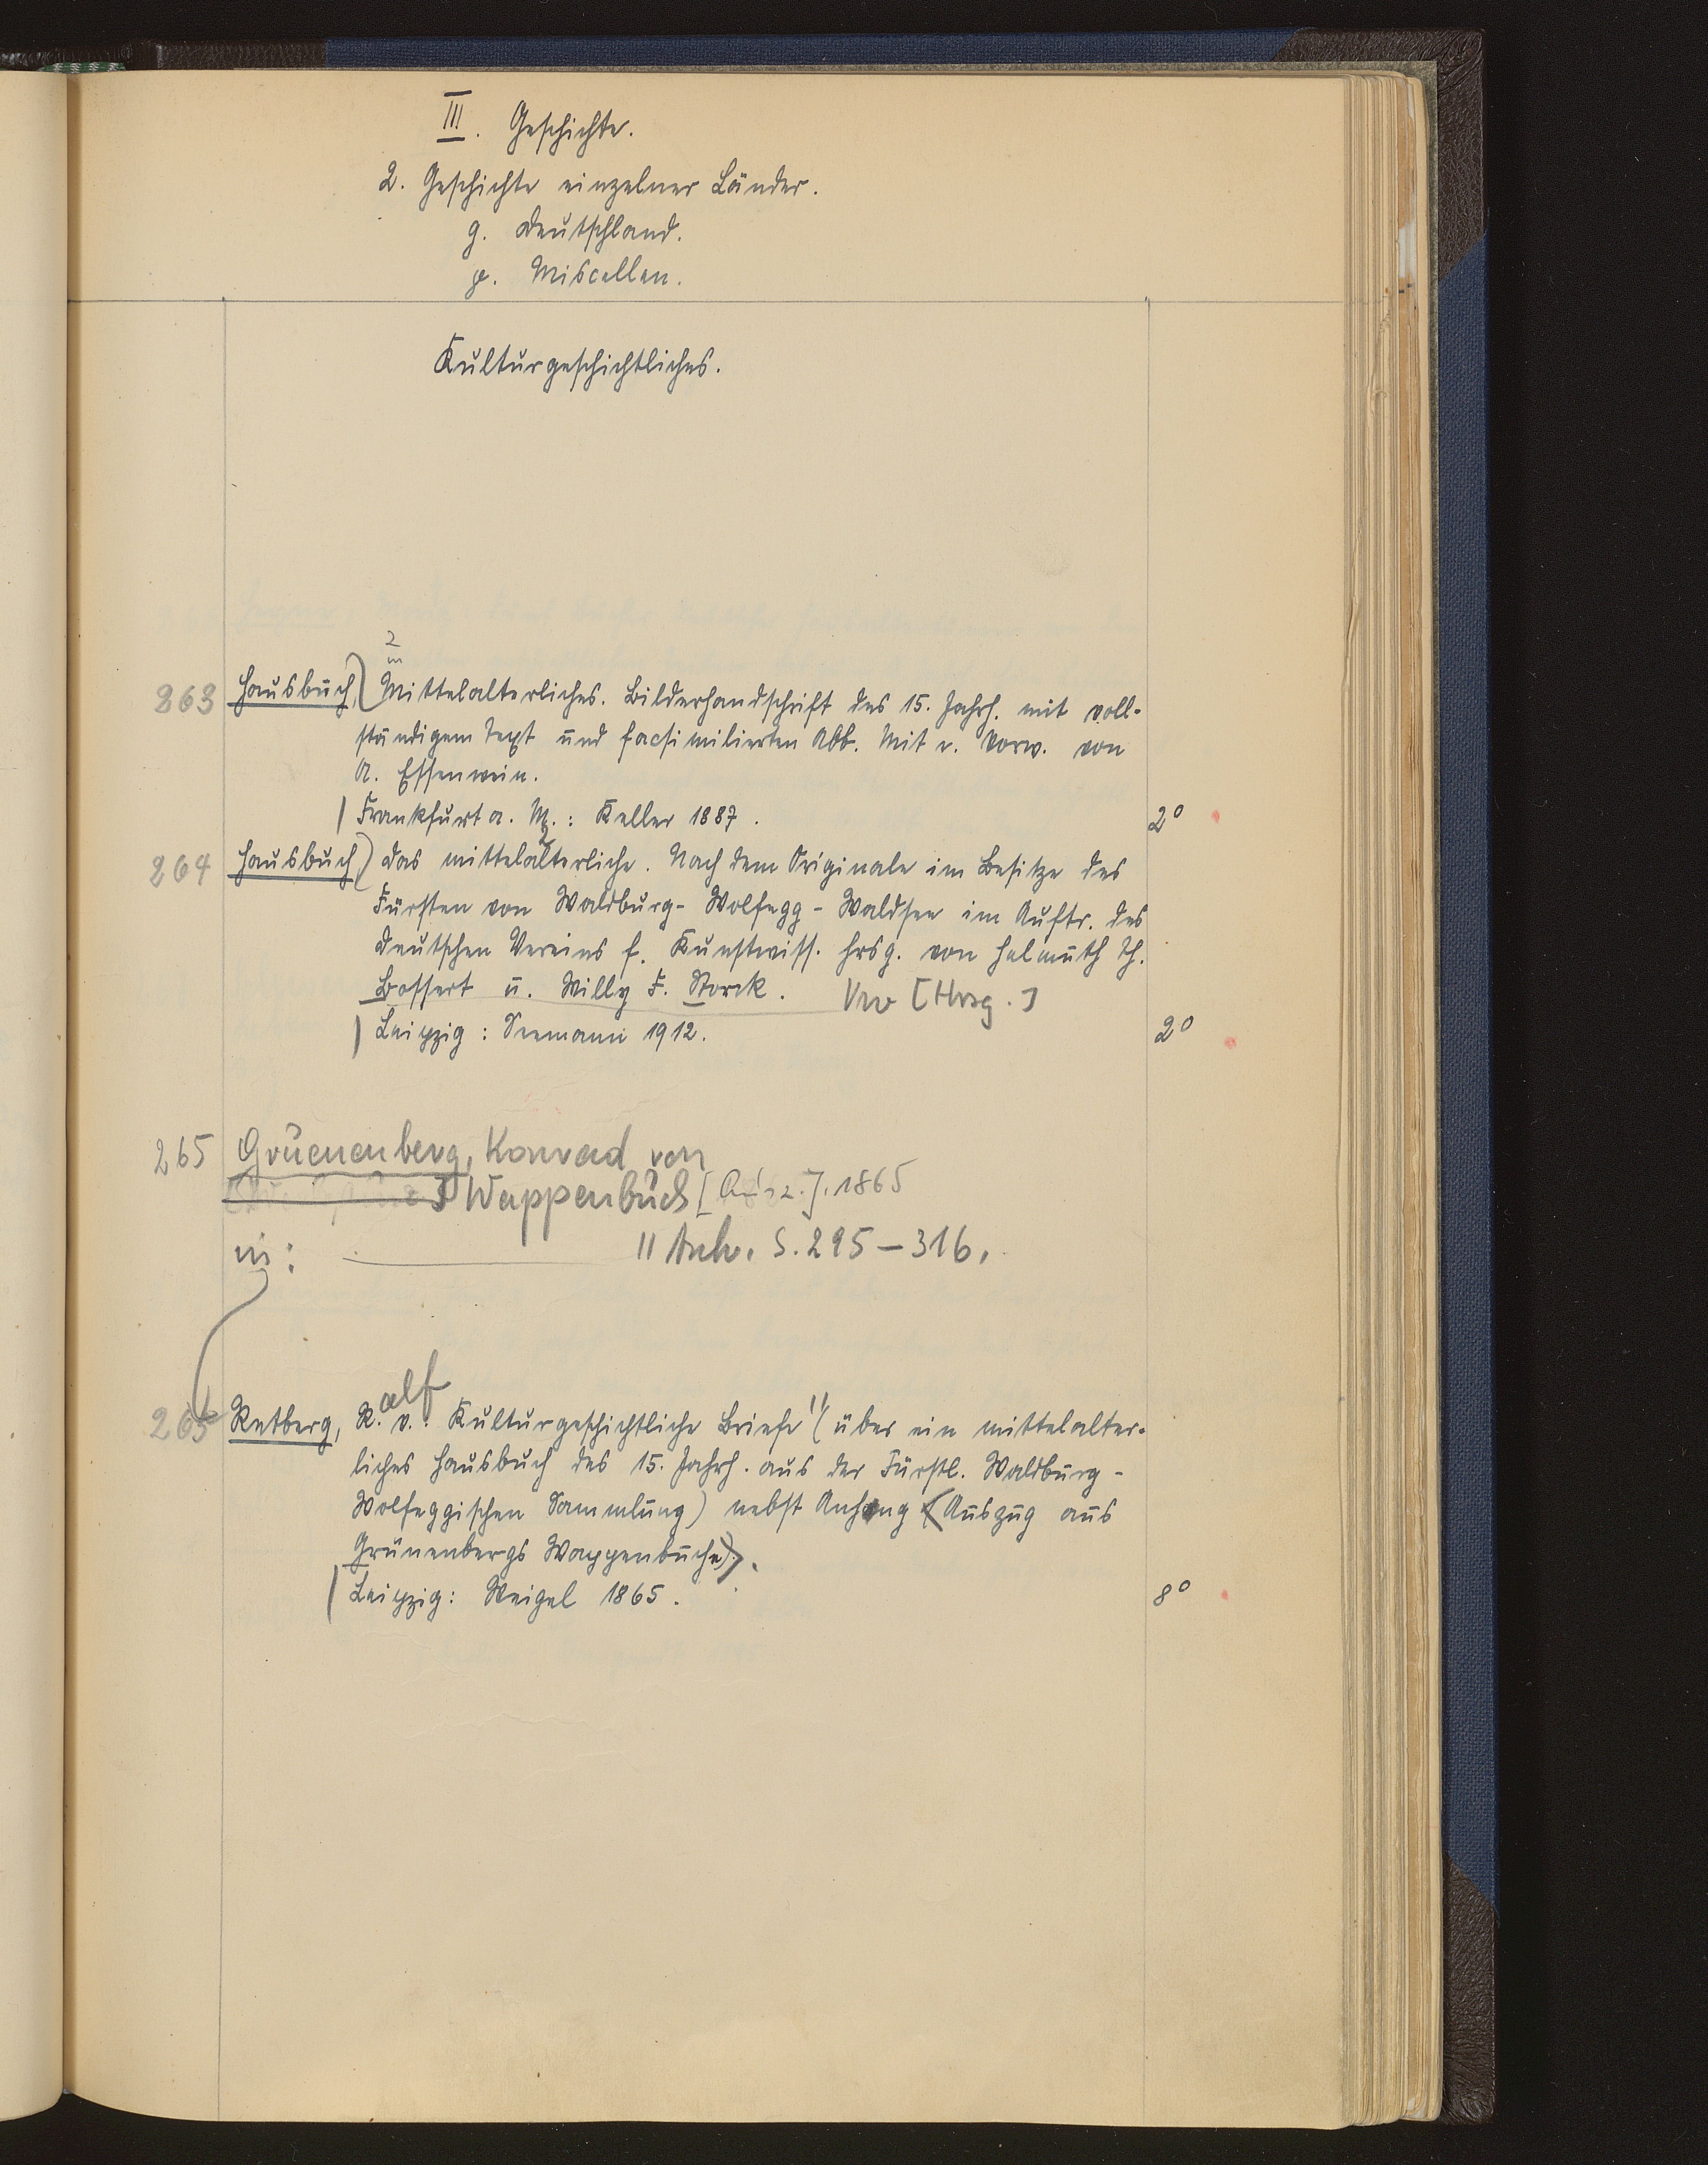 III. Geschichte.
2. Geschichte einzelner Länder.
g. Deutschland.
p. Miscellen.
Kulturgeschichtliches.
2
m
263 Hausbuch, Mittelalterliches. Bilderhandschrift des 15. Jahrh. mit voll-
ständigem Text und facsimilierten Abb. Mit e. Vorw. von
A. Essenwein.
Frankfurt a. M.: Keller 1887. 2°
264 Hausbuch, Das mittelalterliche. Nach dem Originale im Besitze des
Fürsten von Waldburg-Wolfegg-Waldsee im Auftr. des
Deutschen Vereins f. Kunstwiss. hrsg. von Helmuth Th.
Bossert u. Willy F. Storck. Vw [Hrsg.]
Leipzig: Seemann 1912. 2°
265 Grüenenberg, Konrad von
Wappenbuch [Ausz.]. 1865
in: " Anh. S. 295-316.
265 Retberg, R.alf v.: Kulturgeschichtliche Briefe " (über ein mittelalter-
liches Hausbuch des 15. Jahrh. aus der Fürstl. Waldburg-
Wolfeggischen Sammlung) nebst Anhang (Auszug aus
Grünenbergs Wappenbuche).
Leipzig: Weigel 1865. 8°